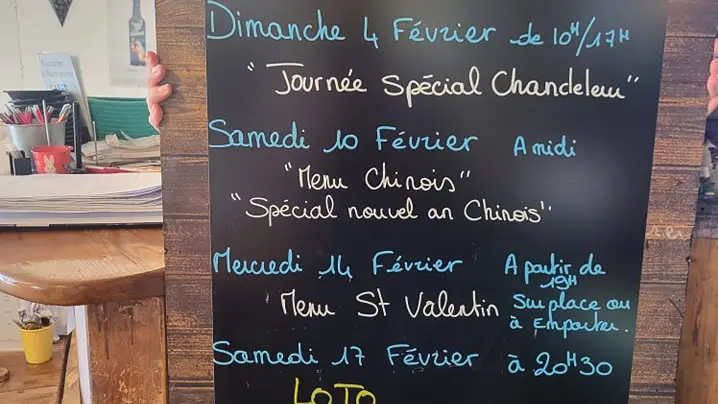 Dimanche 4 Février de 10H/17H
"Journée Spécial Chandeleur"
Samedi 10 Février A midi
"Menu Chinois"
"Spécial nouvel an Chinois"
Mercredi 14 Février A partir de 19H
Menu St Valentin Sur place ou à Emporter.
Samedi 17 Février à 20H30
LOTO